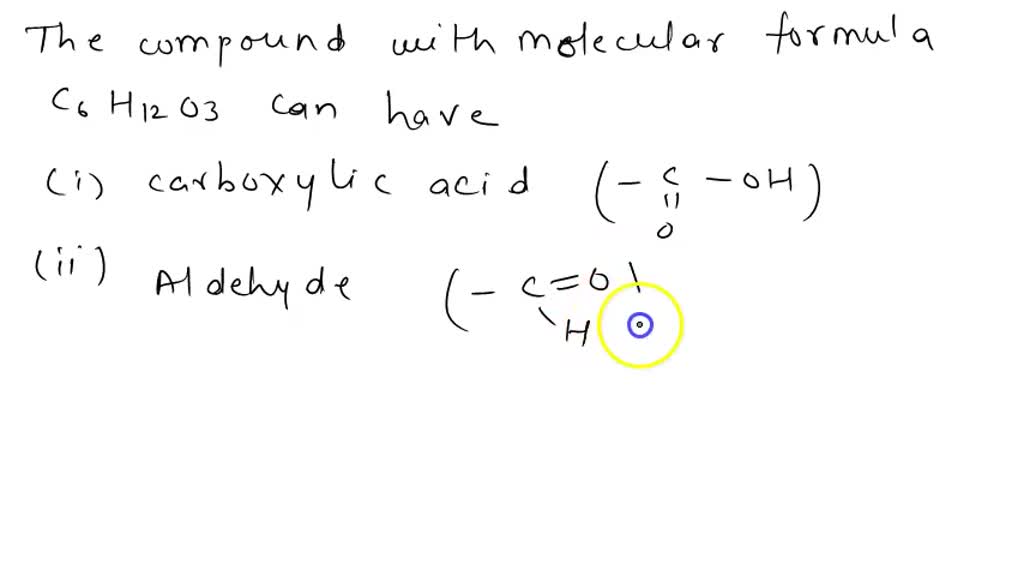 The compound with molecular formula
C6 H12 O3 can have
(i) carboxylic acid (- C - OH)
||
O
(ii) Aldehyde (- C = O \
\ H